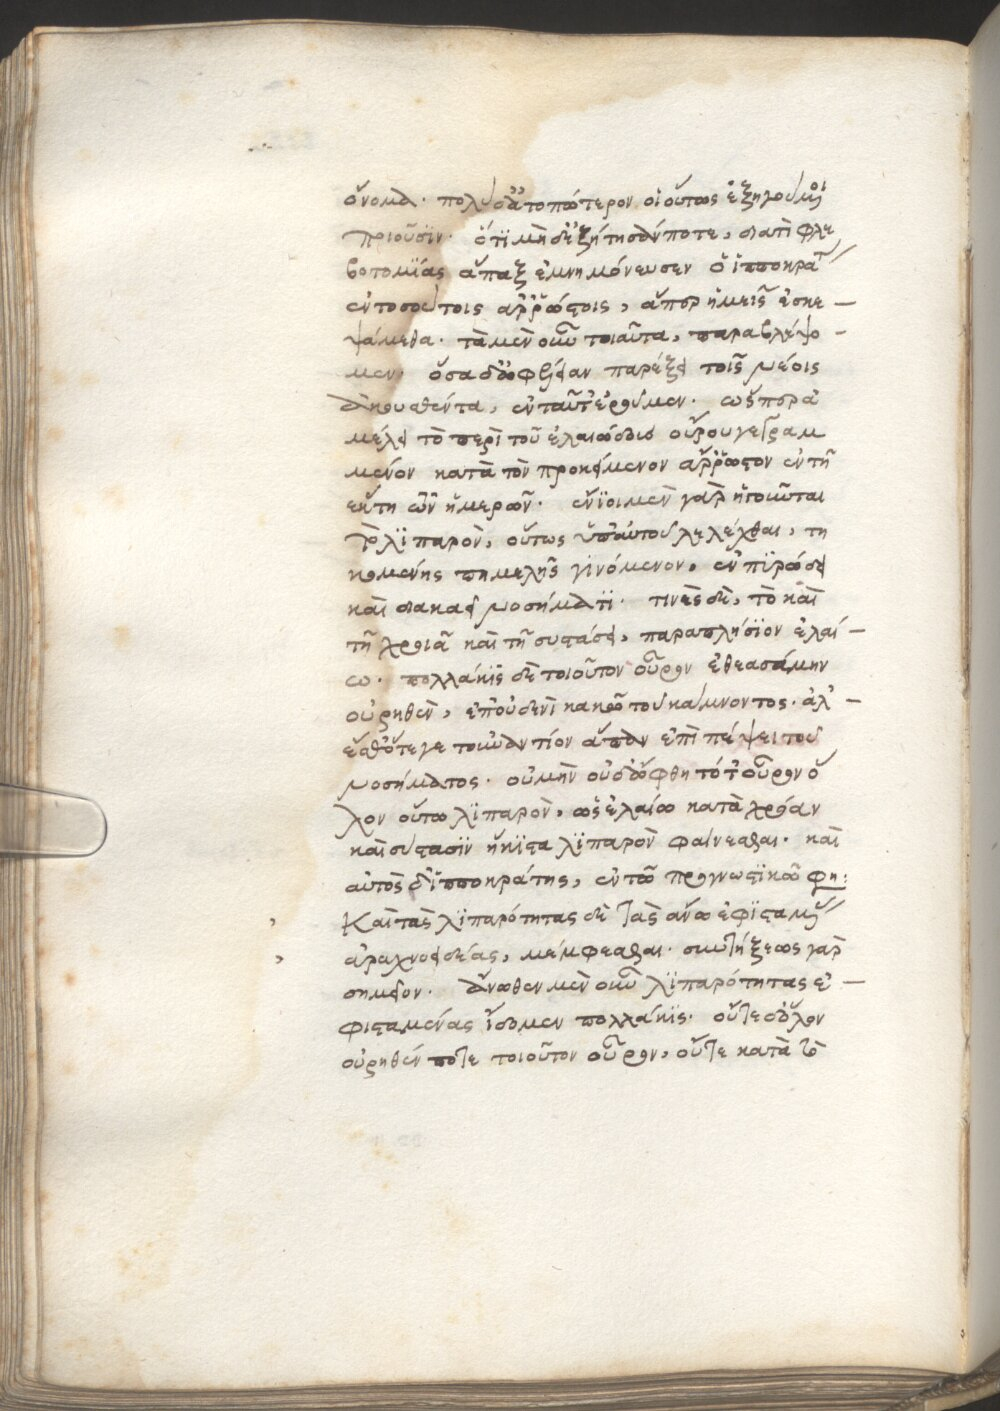 ὄνομα. πολὺ δ' ἀτοπώτερον οἱ οὕτως ἐξηγούμενοι
ποιοῦσιν. ὅτι μηδὲ ζήτησάν ποτε, διατὶ φλε
βοτομίας ἅπαξ ἐμνημόνευσεν ὁ ἱπποκρά
ἐν τοσούτοις ἀρρώστοις, ἅπερ ἡμεῖς ἐσκε —
ψάμεθα. τὰ μὲν οὖν τοιαῦτα, παραβλέψο —
μεν. ὅσα δ' ὠφελεῖσαν παρέξει τοῖς νέοις
ἀκουσθέντα, ἐνταῦτ' ἐροῦμεν. ὥσπερ ἀ
μέλει τὸ περὶ τοῦ ἐλαιώδους οὔρου γεγραμ
μένον κατὰ τὸν προκείμενον ἄρρωστον ἐν τῇ
ἕκτῃ τῶν ἡμερῶν. ἔνιοι μὲν γὰρ ἡγοῦνται
τὸ λιπαρὸν, οὕτως ὑπ' αὐτοῦ λελέχθαι, τη
κομένης πιμελῆς γινόμενον, ἐν πυρώδει
καὶ διακαεῖ νοσήματι. τινὲς δὲ, τὸ καὶ
τῇ χροιᾷ καὶ τῇ συστάσει, παραπλήσιον ἐλαί —
ῳ. πολλάκις δὲ τοιοῦτον οὖρον ἐθεασάμην
οὐρηθὲν, ἐπ' οὐδενὶ κακῷ τοῦ κάμνοντος. ἀλ' —
ἔσθ' ὅτε γε τοὐναντίον ἅπαν ἐπὶ πέψει τοῦ
νοσήματος. οὐ μὴν οὐδ' ὤφθη τό τ' οὖρον ὅ
λον οὕτω λιπαρὸν, ὡς ἐλαίῳ κατὰ χρόαν
καὶ σύστασιν ἥκιστα λιπαρὸν φαίνεσθαι. καὶ
αὐτὸς δ' ἱπποκράτης, ἐν τῷ προγνωστικῷ φη:
Καὶ τὰς λιπαρότητας δὲ τὰς ἄνω ἐφισταμένας
ἀραχνοειδέας, μέμφεσθαι. συντήξεως γὰρ
σημεῖον. ἄνωθεν μὲν οὖν λιπαρότητας ἐ —
φισταμένας ἴδομεν πολλάκις. οὔτε δ' ὅλον
οὐρηθέν ποτε τοιοῦτον οὖρον, οὔτε κατὰ τὸ